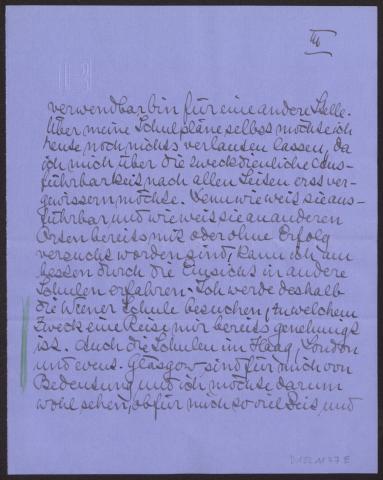 III
verwendbar bin für eine andere Stelle.
Über meine Schulpläne selbst möchte ich
heute noch nichts verlauten lassen, da
ich mich über die zweckdienliche Aus-
führbarkeit nach allen Seiten erst ver-
gewissern möchte. Denn wie weit sie aus-
führbar und wie weit sie an anderen
Orten bereits mit oder ohne Erfolg
versucht worden sind, kann ich am
besten durch die Einsicht in andere
Schulen erfahren. Ich werde deshalb
die Wiener Schule besuchen, zu welchem
Zweck eine Reise mir bereits genehmigt
ist. Auch die Schulen im Haag, London
und event. Glasgow sind für mich von
Bedeutung und ich möchte darum
wohl sehen, ob für mich so viel Zeit, und